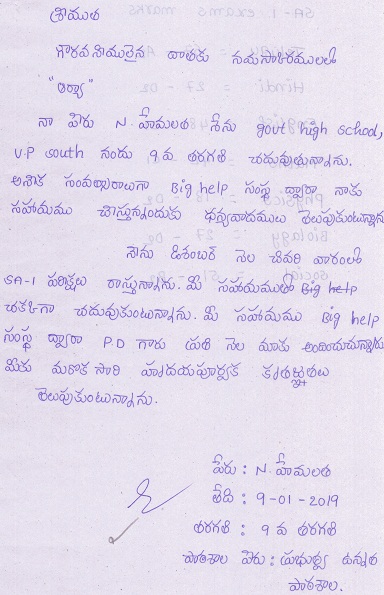 శ్రీయుత
గౌరవనీయులైన దాతకు నమస్కారములతో
"ఆర్యా"
నా పేరు N.హేమలత నేను govt high school,
V.P south నందు 9వ తరగతి చదువుతున్నాను.
అనేక సంవత్సరాలుగా Big help సంస్థ ద్వారా నాకు
సహాయము చేస్తున్నందుకు ధన్యవాదములు తెలుపుకుంటున్నాను
నేను డిశంబర్ నెల చివరి వారంలో
SA-1 పరీక్షలు రాస్తున్నాను. మీ సహాయముతో Big help
చక్కగా చదువుకుంటున్నాను. మీ సహాయము Big help
సంస్థ ద్వారా P.D గారు ప్రతి నెల మాకు అందించుచున్నారు
మీకు మరొక సారి హృదయపూర్వక కృతజ్ఞతలు
తెలుపుకుంటున్నాను.
పేరు : N.హేమలత
తేది : 9-01-2019
తరగతి : 9వ తరగతి
పాఠశాల పేరు : ప్రభుత్వ ఉన్నత
పాఠశాల.